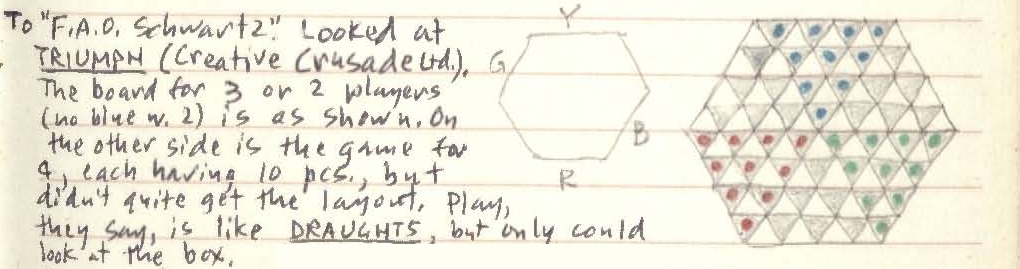 To "F.A.O. Schwartz". Looked at
TRIUMPH (Creative Crusade Ltd.).
The board for 3 or 2 players
(no blue w. 2) is as shown. On
the other side is the game for
4, each having 10 pcs., but
didn't quite get the layout. Play,
they say, is like DRAUGHTS, but only could
look at the box.
Y
G
B
R